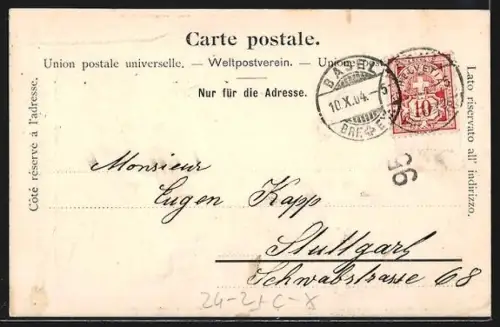 Carte postale.
Union postale universelle. – Weltpostverein. – Union post
Nur für die Adresse.
Côté réservé à l'adresse.
Lato riservato all' indirizzo.
BASEL
10.X.04.-5
BRF.
HELVETIA
10
95
Monsieur
Eugen Kapp
Stuttgart
Schwabstrasse 68